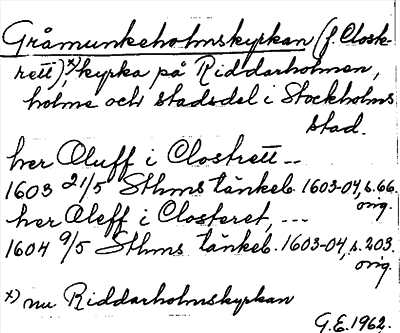 Gråmunkeholmskyrkan (f. Closk-
rett),x) kyrka på Riddarholmen,
holme och stadsdel i Stockholms
stad.
her Oluff i Clostrett --
1603 21/5 Sthms tänkeb. 1603-04, s. 66.
orig.
her Oleff i Closteret, ---
1604 9/5 Sthms tänkeb. 1603-04, s. 203.
orig.
x) nu Riddarholmskyrkan
G.E. 1962.